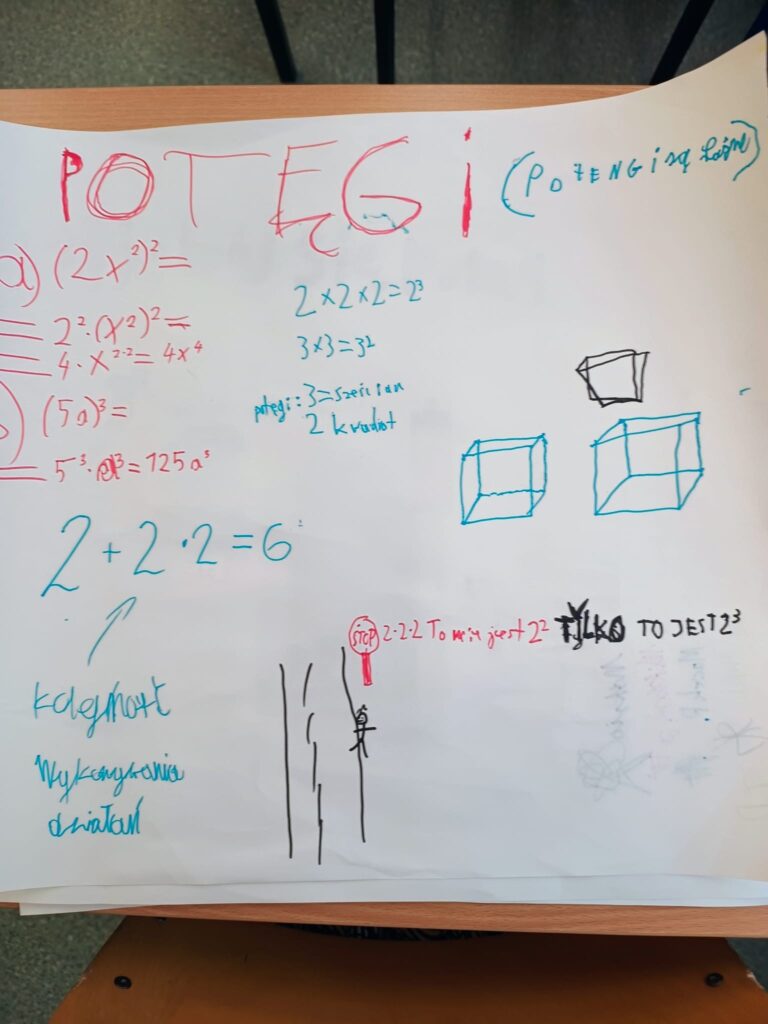 POTĘGI
(POTENGi są fajne)
a) (2x²)² =
2²·(x²)² =
4·x²·² = 4x⁴
b) (5a)³ =
5³·a³ = 125a³
2×2×2=2³
3×3=3²
potęgi: 3=sześcian
2 kwadrat
2+2·2=6
kolejność
Wykonywania
działań
STOP 2·2·2 To nie jest 2² TYLKO TO JEST 2³